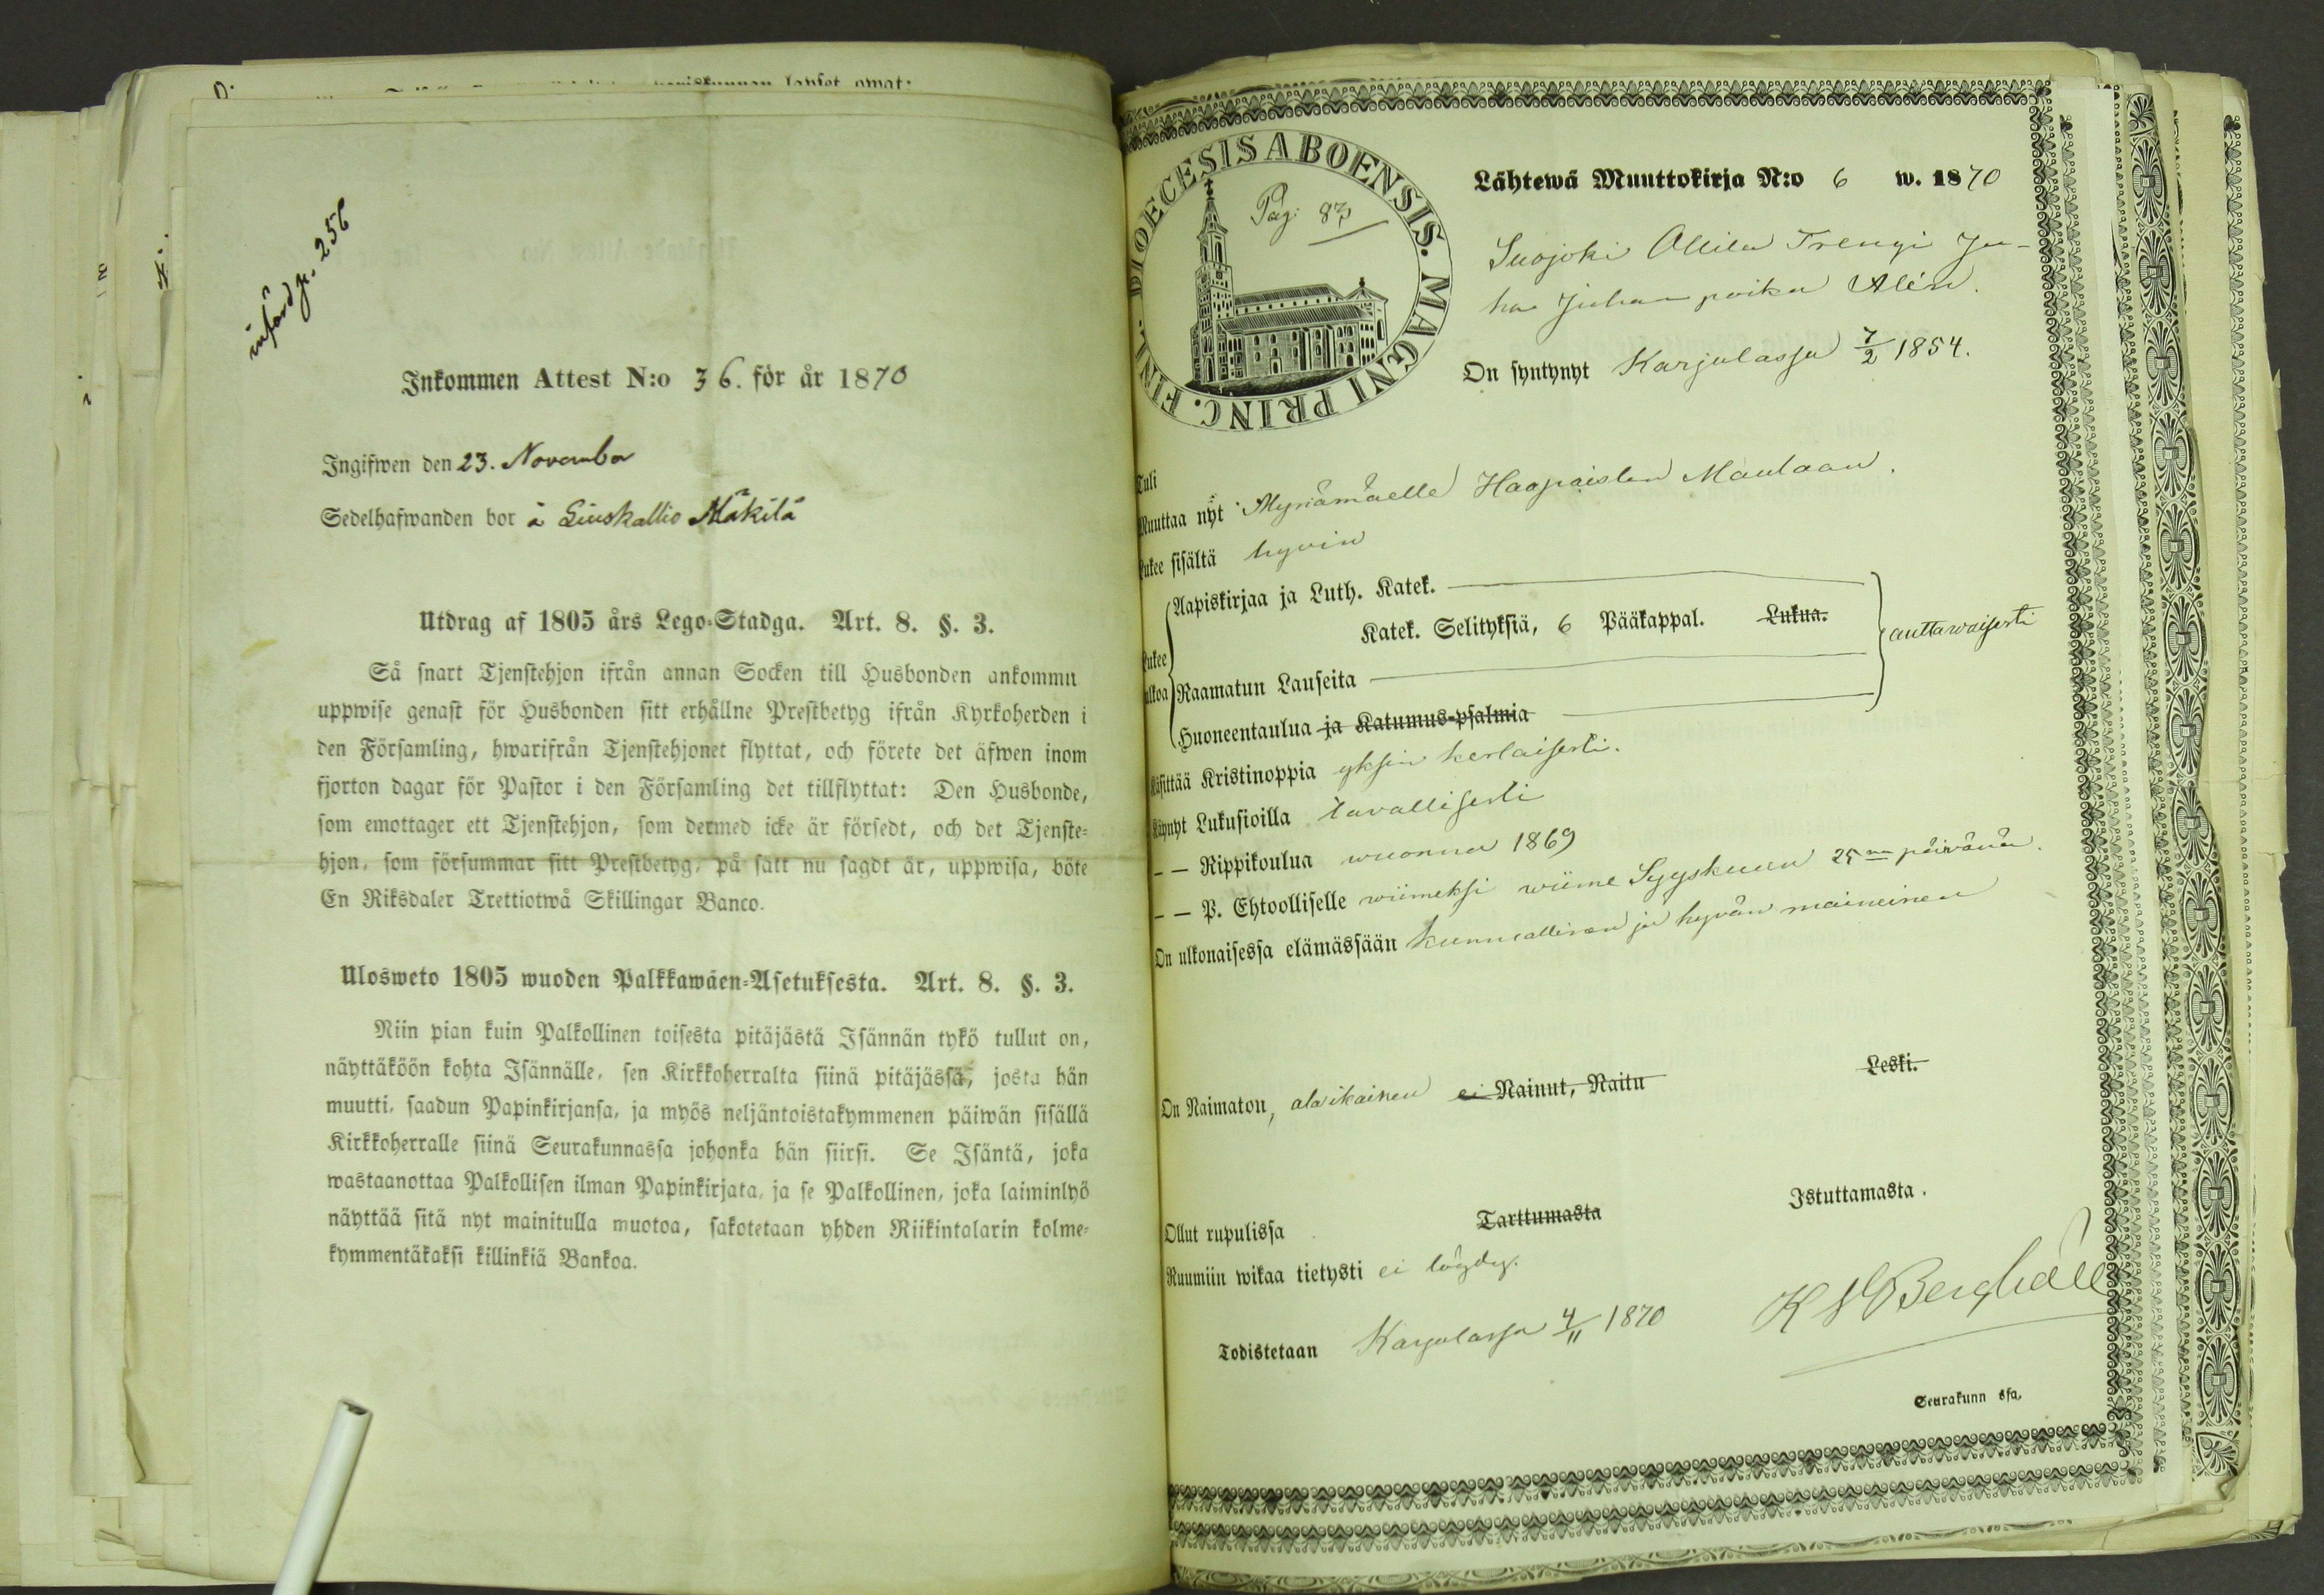 införd p. 256
Inkommen Attest N:o 36. för år 1870
Ingifwen den 23. November
Sedelhafwanden bor å Liuskallio Mäkilä
Utdrag af 1805 års Lego-Stadga. Art. 8. §. 3.
Så snart Tjenstehjon ifrån annan Socken till Husbonden ankommit
uppwise genast för Husbonden sitt erhållne Prestbetyg ifrån Kyrkoherden i
den Församling, hwarifrån Tjenstehjonet flyttat, och förete det äfwen inom
fjorton dagar för Pastor i den Församling det tillflyttat: Den Husbonde,
som emottager ett Tjenstehjon, som dermed icke är försedt, och det Tjenste-
hjon, som försummar sitt Prestbetyg, på sätt nu sagdt är, uppwisa, böte
En Riksdaler Trettiotwå Skillingar Banco.
Ulosweto 1805 wuoden Palkkawäen-Asetuksesta. Art. 8. §. 3.
Niin pian kuin Palkollinen toisesta pitäjästä Isännän tykö tullut on,
näyttäköön kohta Isännälle, sen Kirkkoherralta siinä pitäjässä, josta hän
muutti, saadun Papinkirjansa, ja myös neljäntoistakymmenen päiwän sisällä
Kirkkoherralle siinä Seurakunnassa johonka hän siirsi. Se Isäntä, joka
wastaanottaa Palkollisen ilman Papinkirjata, ja se Palkollinen, joka laiminlyö
näyttää sitä nyt mainitulla muotoa, sakotetaan yhden Riikintalarin kolme-
kymmentäkaksi killinkiä Bankoa.
DIOECESIS ABOENSIS. MAGNI PRINC. FINL.
Pag: 83
Lähtewä Muuttokirja N:o 6 w. 1870
Suojoki Ollila Trengi Ju-
ha Juhan poika Alén.
On syntynyt Karjalassa 7/2 1854.
Tuli
Muuttaa nyt Mynämäelle Haapaisten Maulaan.
Lukee sisältä hyvin
Aapiskirjaa ja Luth. Katek.
Katek. Selityksiä, 6 Pääkappal. Lukua.
Lukee ulkoa
auttawaisesti
Raamatun Lauseita
Huoneentaulua ja Katumus-psalmia
Käsittää Kristinoppia yksin kertaisesti.
Käynyt Lukusioilla tavallisesti
— — Rippikoulua wuonna 1869
— — P. Ehtoolliselle wiimeksi wiime Syyskuun 25na päivänä.
On ulkonaisessa elämässään kunniallinen ja hyvän maineinen
On Naimaton, alaikäinen ei Nainut, Naitu Leski.
Ollut rupulissa Tarttumasta Istuttamasta.
Ruumiin wikaa tietysti ei löydy.
Todistetaan Karjalassa 4/11 1870
Berghäll
Seurakunn ssa.